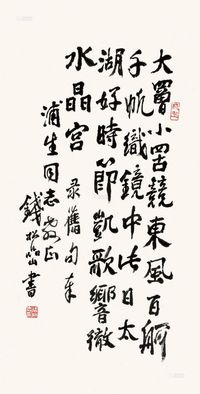 大罾小罟競東風百舸
千帆織鏡中此日太
湖好時節凱歌響徹
水晶宮
錄舊句奉
浦生同志教正
錢松喦書